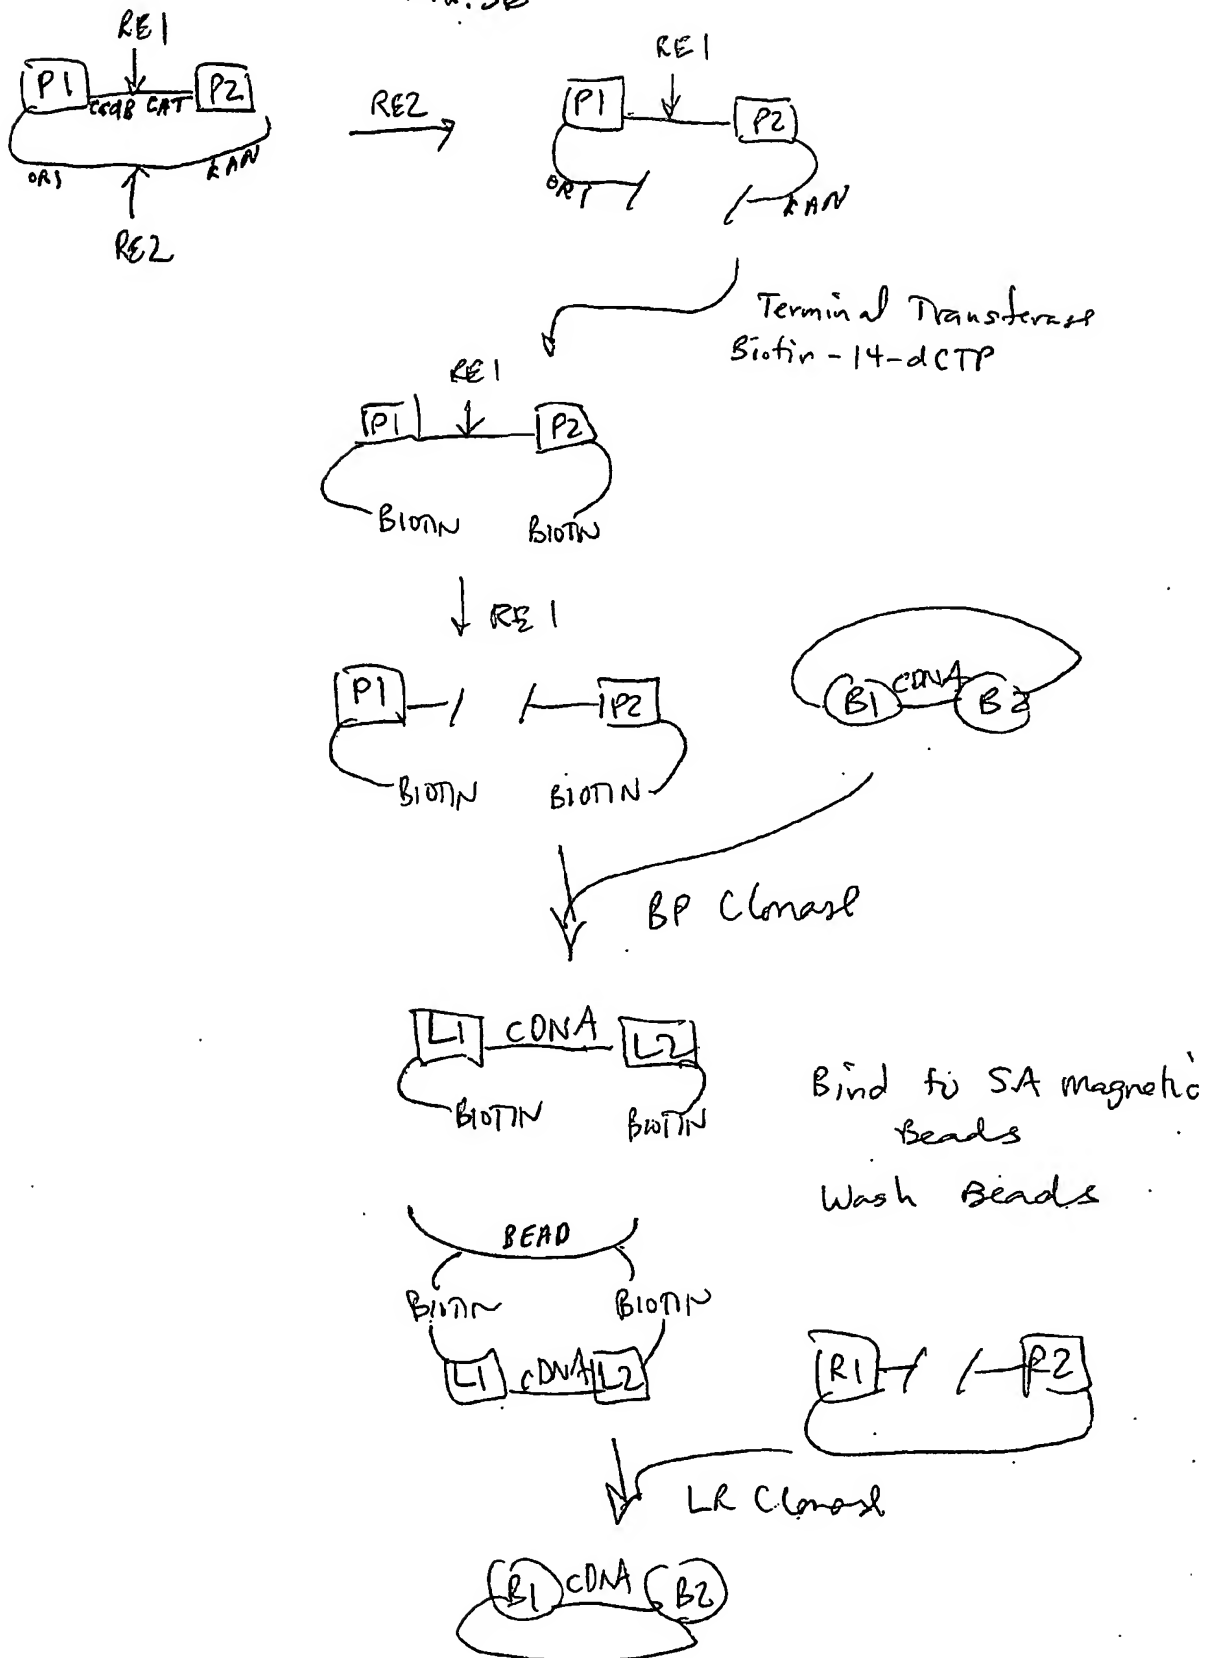 RE1
P1 P2
ccdB CAT
ORI KAN
RE2
RE2
RE1
P1 P2
ORI KAN
Terminal Transferase
Biotin-14-dCTP
RE1
P1 P2
BIOTIN BIOTIN
RE1
P1 P2
BIOTIN BIOTIN
B1 CDNA B2
BP Clonase
L1 CDNA L2
BIOTIN BIOTIN
Bind to SA magnetic
Beads
Wash Beads
BEAD
BIOTIN BIOTIN
L1 CDNA L2
R1 R2
LR Clonase
B1 CDNA B2